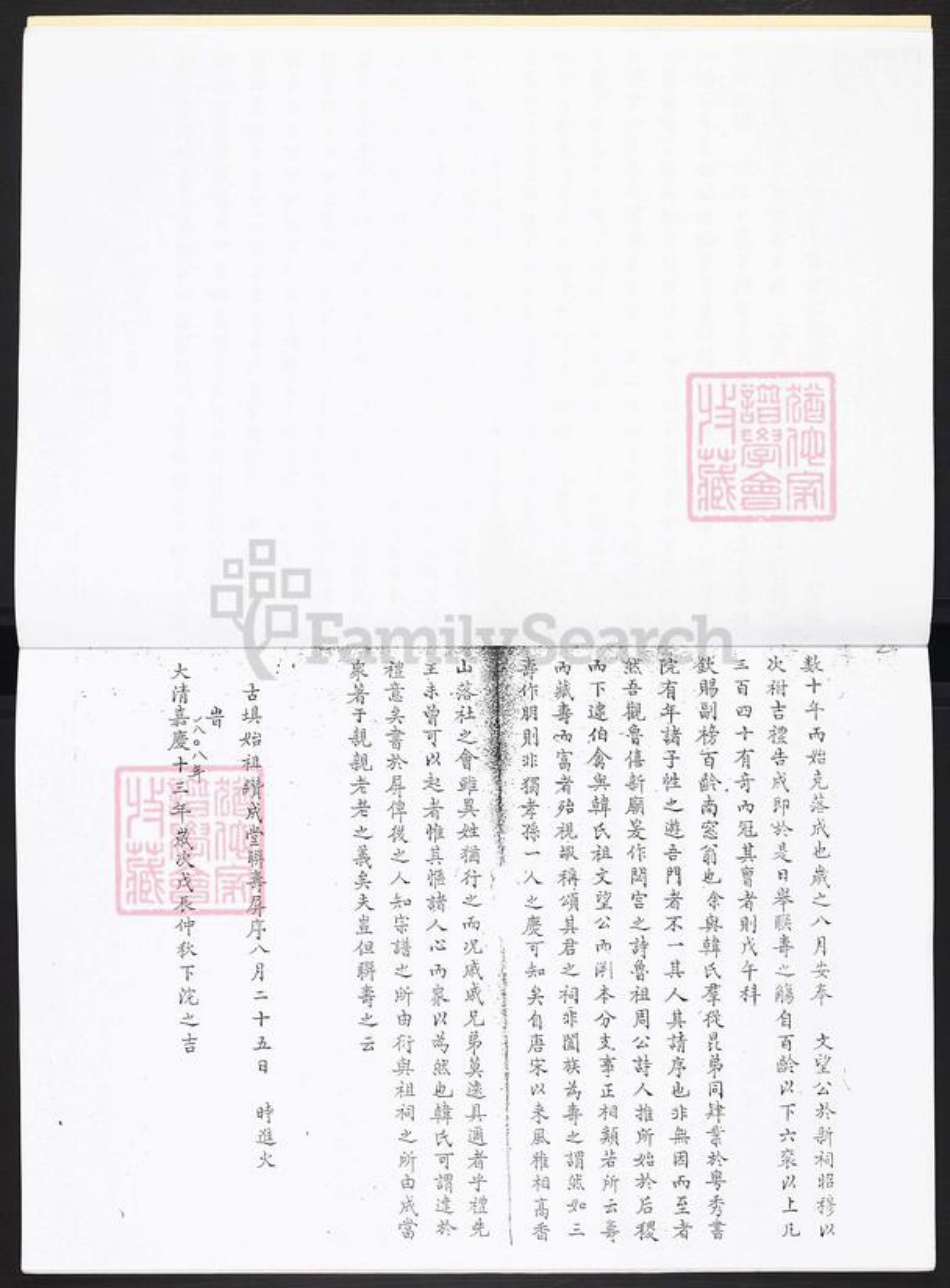 數十年而始克落成也歲之八月安奉 文望公於新祠昭穆以
次祔吉禮告成即於是日舉聯壽之觴自百齡以下六袠以上凡
三百四十有奇而冠其曹者則戊午科
欽賜副榜百齡南窓翁也余與韓氏羣從昆弟同肄業於粵秀書
院有年諸子姓之遊吾門者不一其人其請序也非無因而至者
然吾觀魯僖新廟爰作閟宮之詩魯祖周公詩人推所始於后稷
而下逮伯禽與韓氏祖文望公而溯本分支事正相類若所云壽
而臧壽而富者殆視諏稱頌其君之詞非闔族為壽之謂然如三
壽作朋則非獨孝孫一人之慶可知矣自唐宋以來風雅相高香
山落社之會雖異姓猶行之而况戚戚兄弟莫遠具邇者乎禮先
王未曾可以起者惟其愜諸人心而衆以為然也韓氏可謂達於
禮意矣書於屏俾後之人知宗譜之所由衍與祖祠之所由成當
衆著于親親老老之義矣夫豈但聯壽之云
古填始祖纘成堂聯壽屏序八月二十五日 時進火
旹
一八〇八年
大清嘉慶十三年歲次戊辰仲秋下浣之吉
猶他家
譜學會
收藏
猶他家
譜學會
收藏
FamilySearch